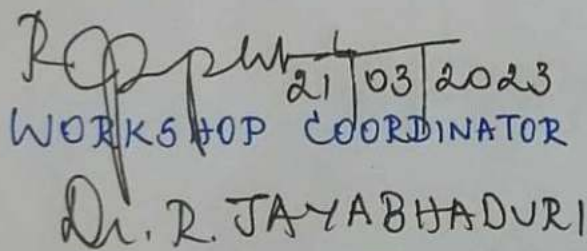 21/03/2023
WORKSHOP COORDINATOR
Dr. R. JAYABHADURI